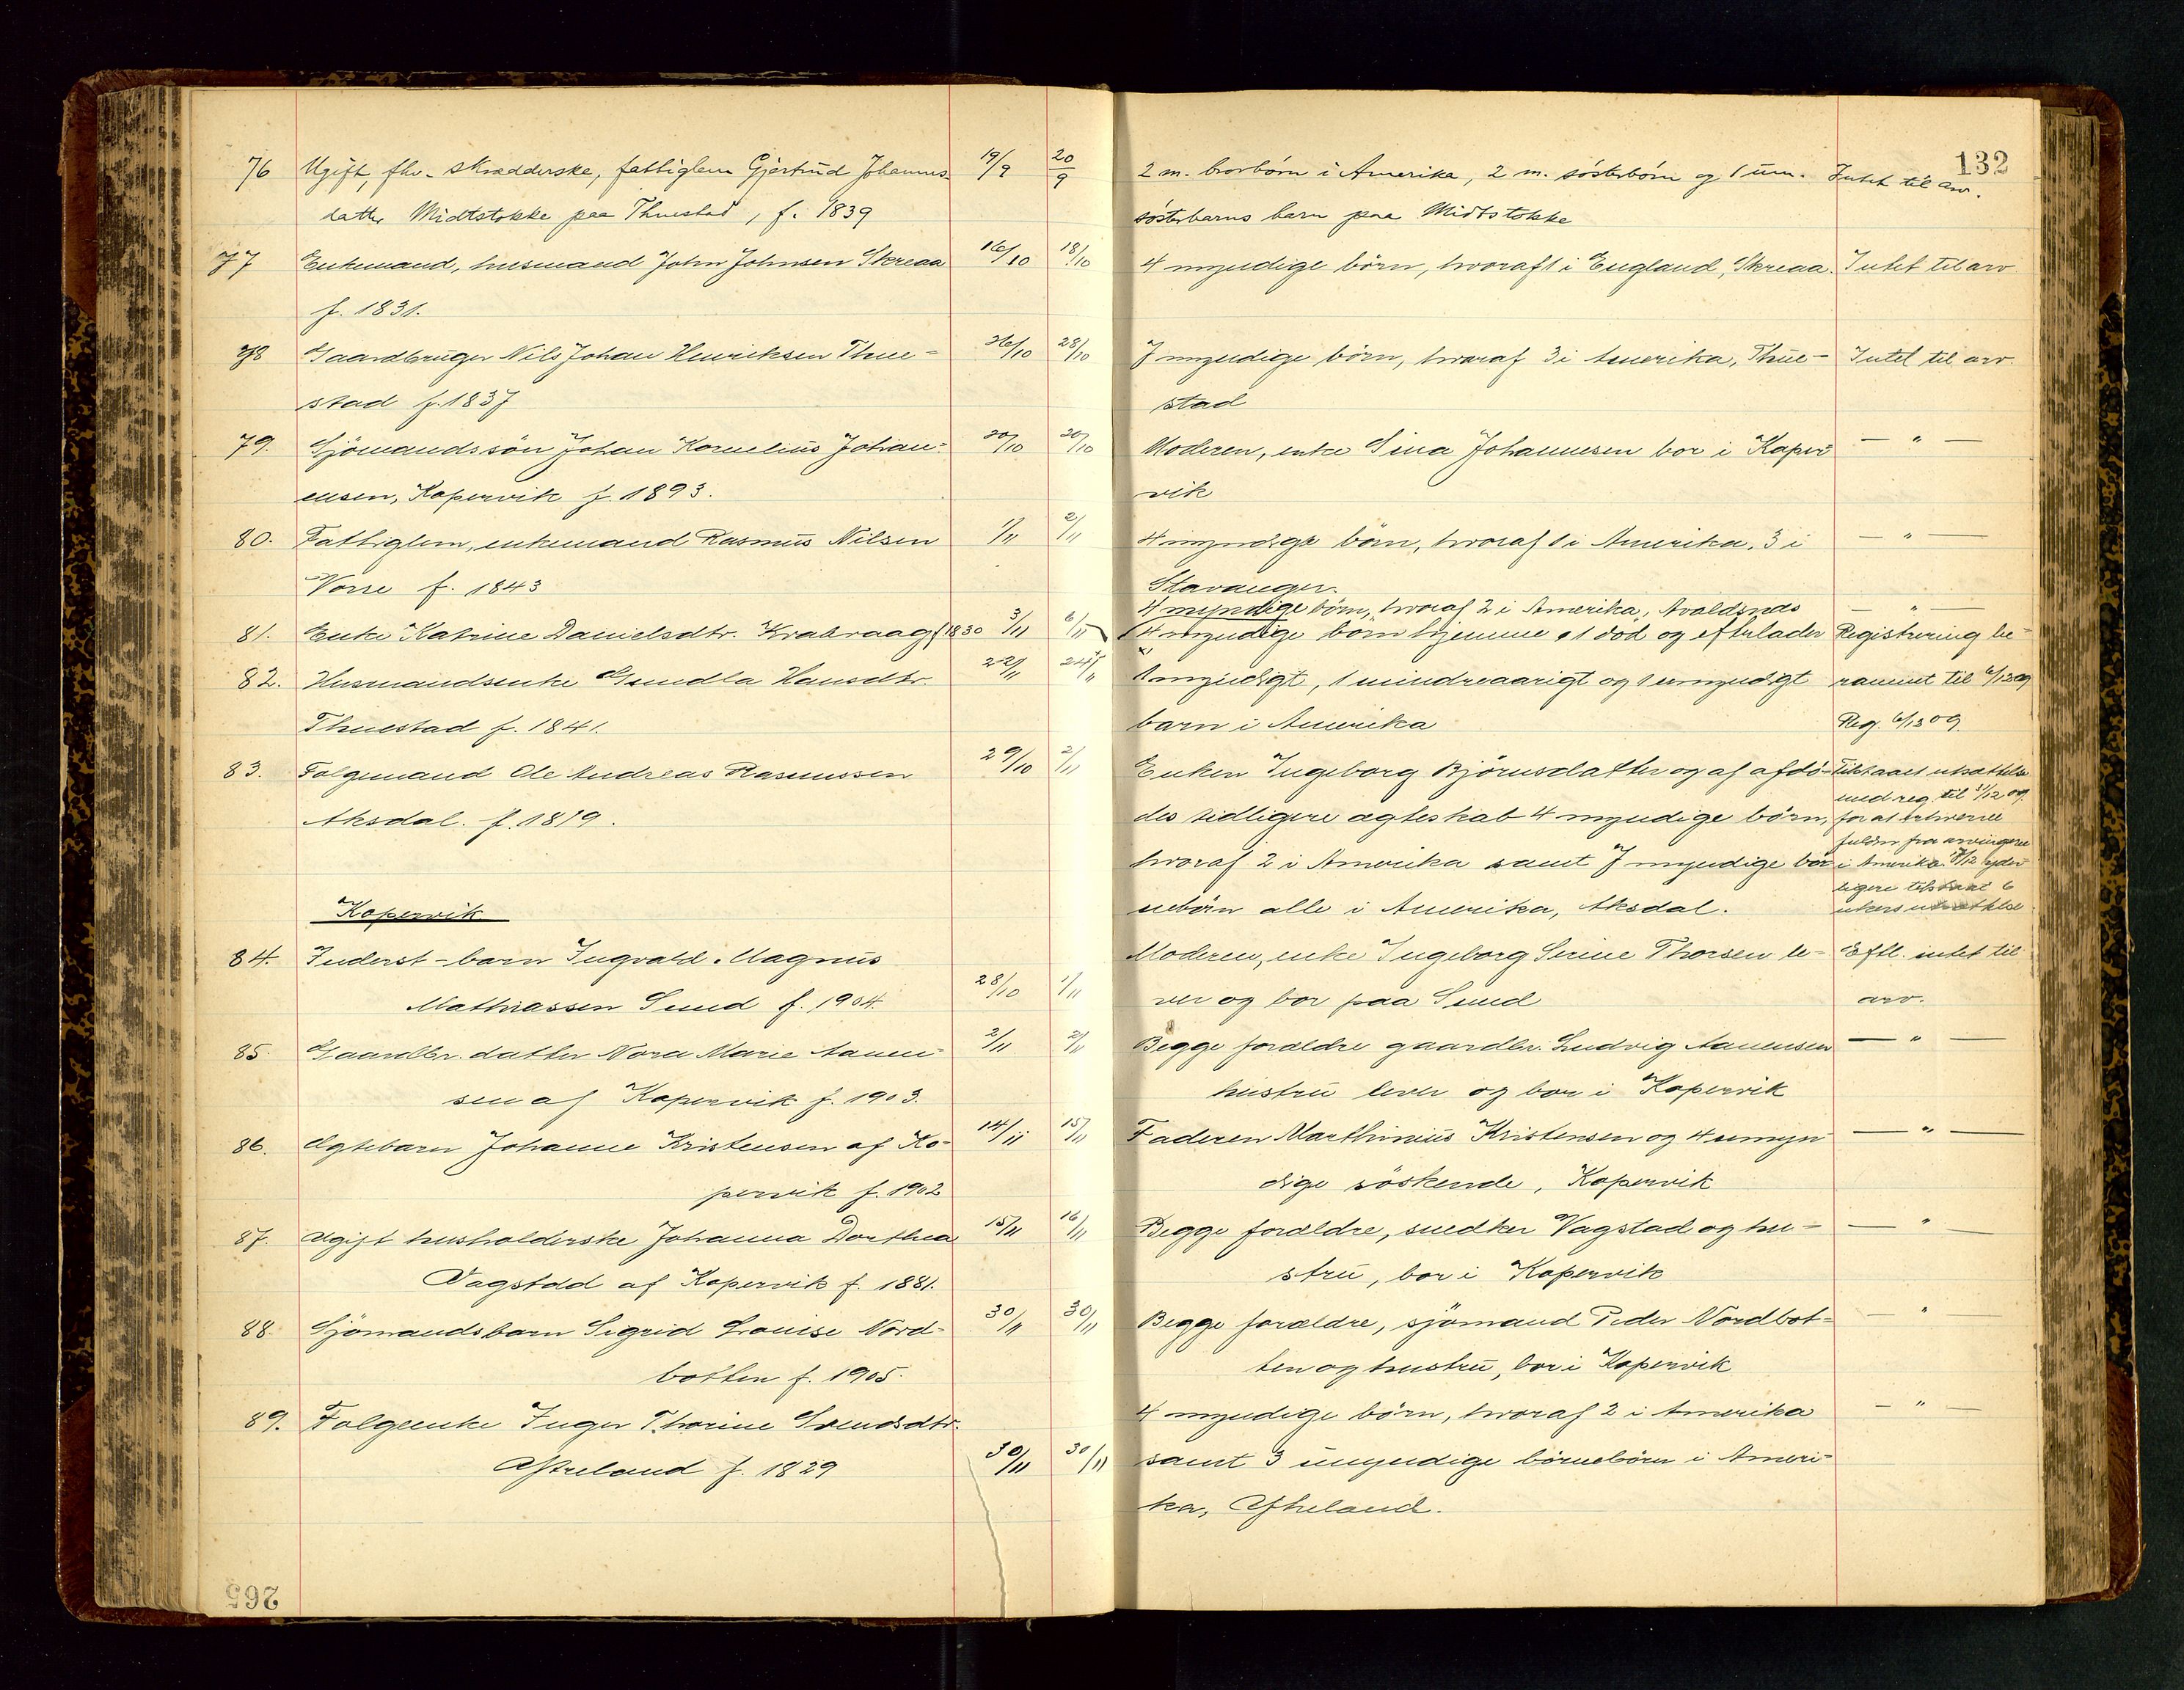 132
76 Ugift, fhv. skrædderske, fattiglem Gjertrud Johannes- 19/9 20/9 2 m. brorbörn i Amerika, 2 m. sösterbörn og 1 um. Intet til arv.
datter Midtstokke paa Thuestad, f. 1839 sösterbarns barn paa Midtstokke
77 Enkemand, husmand John Johnsen Skreaa 16/10 18/10 4 myndige börn, hvoraf 1 i England, Skreaa. Intet til arv
f. 1831.
78 Gaardbruger Nils Johan Henriksen Thue- 26/10 28/10 7 myndige börn, hvoraf 3 i Amerika, Thue- Intet til arv.
stad f. 1837 stad
79. Sjömandssön Johan Kornelius Johan- 20/10 20/10 Moderen, enke Sina Johannesen bor i Koper- — " —
nesen, Kopervik f. 1893. vik
80. Fattiglem, enkemand Rasmus Nilsen 1/11 2/11 4 myndige börn, hvoraf 1 i Amerika, 3 i — " —
Vorre f. 1843 Stavanger.
4 myndige börn, hvoraf 2 i Amerika, Avaldsnes — " —
81. Enke Katrine Danielsdtr. Krabraag f 1830 3/11 6/11 4 myndige börn hjemme, 1 död og efterlader Registrering be-
82. Husmandsenke Gundla Hansdtr. 22/11 24/11 1 myndigt, 1 mindreaarigt og 1 umyndigt rammet til 6/12 09
Thuestad f. 1841. barn i Amerika Reg. 6/12 09.
83. Folgemand Ole Andreas Rasmussen 29/10 2/11 Enken Ingeborg Björnsdatter og af afdö- Tilstaaet utsættelse
med reg. til 11/12 09.
Aksdal. f. 1819. des tidligere ægteskab 4 myndige börn, for at erhverve
fuldm. fra arvingerne
hvoraf 2 i Amerika samt 7 myndige bör- i Amerika. /12 yder-
ligere tilstaaet 6
Kopervik nebörn alle i Amerika, Aksdal. ukers utsættelse
84. Inderst-barn Ingvald Magnus Moderen, enke Ingeborg Serine Thorsen le- Eftl. intet til
Mathiassen Sund f. 1904. 28/10 1/11 ver og bor paa Sund arv.
85. Gaardbr. datter Nora Marie Aanen- 2/11 2/11 Begge forældre gaardbr. Ludvig Aanensen — " —
sen af Kopervik f. 1903. hustru lever og bor i Kopervik
86. Ægtebarn Johanne Kristensen af Ko- 14/11 15/11 Faderen Marthinius Kristensen og 4 umyn- — " —
pervik f. 1902 dige söskende, Kopervik
87. Ugift husholderske Johanna Dorthea 15/11 16/11 Begge forældre, snedker Vagstad og hu- — " —
Vagstad af Kopervik f. 1881. stru, bor i Kopervik
88. Sjömandsbarn Sigrid Lovise Nord- 30/11 30/11 Begge forældre, sjömand Peder Nordbot- — " —
botten f. 1905. ten og hustru, bor i Kopervik
89. Folgeenke Inger Thorine Svendsdtr. 4 myndige börn, hvoraf 2 i Amerika — " —
Østreland f. 1829 30/11 30/11 samt 3 umyndige börnebörn i Ameri-
ka, Østreland.
265